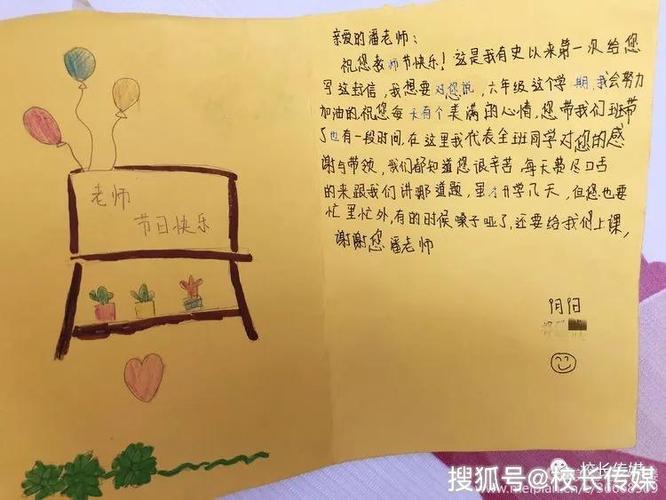 老师
节日快乐
亲爱的潘老师：
祝您教师节快乐！这是我有史以来第一次给您
写这封信，我想要对您说，六年级这个学期，我会努力
加油的祝您每天有个美满的心情，您带我们班带
了也有一段时间，在这里我代表全班同学对您的感
谢与带领，我们都知道您很辛苦，每天费尽口舌
的来跟我们讲哪道题，虽才开学几天，但您也要
忙里忙外，有的时候嗓子哑了，还要给我们上课，
谢谢您潘老师
阴阳
校长传媒
搜狐号@校长传媒